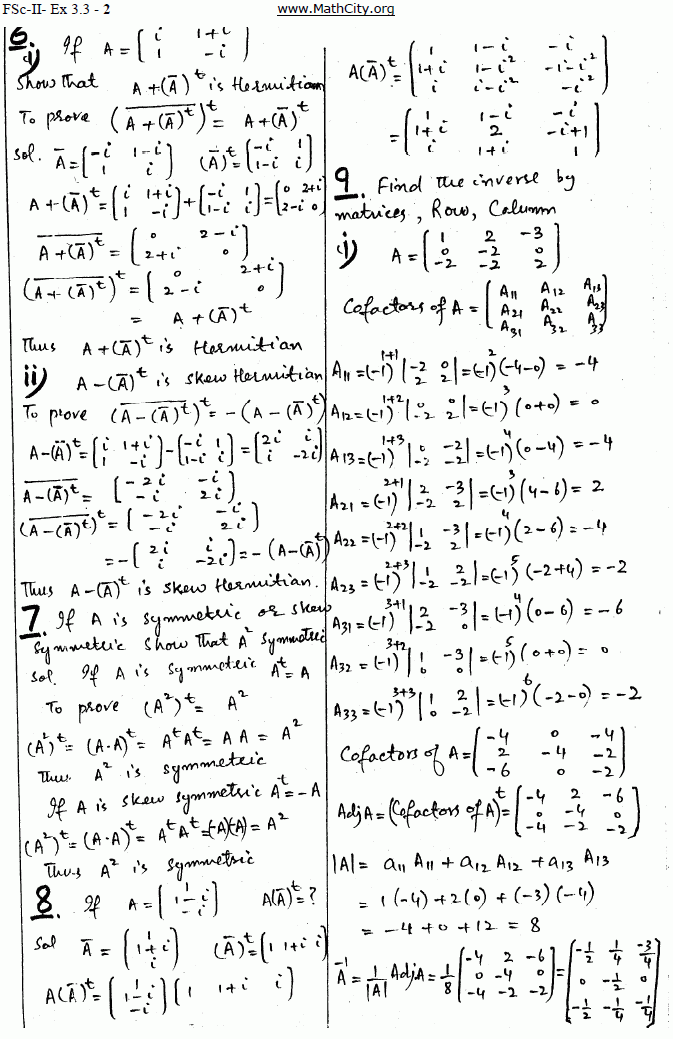 FSc-II- Ex 3.3 - 2
www.MathCity.org
6.
i) If A = [i 1+i; 1 -i]
Show that A+(Ā)^t is Hermitian
To prove (\overline{A+(Ā)^t})^t = A+(Ā)^t
Sol. Ā = [-i 1-i; 1 i] (Ā)^t = [-i 1; 1-i i]
A+(Ā)^t = [i 1+i; 1 -i] + [-i 1; 1-i i] = [0 2+i; 2-i 0]
\overline{A+(Ā)^t} = [0 2-i; 2+i 0]
(\overline{A+(Ā)^t})^t = [0 2+i; 2-i 0]
= A+(Ā)^t
Thus A+(Ā)^t is Hermitian
ii) A-(Ā)^t is skew Hermitian
To prove (\overline{A-(Ā)^t})^t = -(A-(Ā)^t)
A-(Ā)^t = [i 1+i; 1 -i] - [-i 1; 1-i i] = [2i i; i -2i]
\overline{A-(Ā)^t} = [-2i -i; -i 2i]
(\overline{A-(Ā)^t})^t = [-2i -i; -i 2i]
= -[2i i; i -2i] = -(A-(Ā)^t)
Thus A-(Ā)^t is Skew Hermitian.
7. If A is symmetric or skew
symmetric show that A² symmetric
Sol. If A is symmetric A^t = A
To prove (A²)^t = A²
(A²)^t = (A·A)^t = A^t A^t = A A = A²
Thus A² is symmetric
If A is skew symmetric A^t = -A
(A²)^t = (A·A)^t = A^t A^t = (-A)(-A) = A²
Thus A² is symmetric
8. If A = [1; 1-i; -i] A(Ā)^t = ?
Sol Ā = [1; 1+i; i] (Ā)^t = [1 1+i i]
A(Ā)^t = [1; 1-i; -i] [1 1+i i]
A(Ā)^t = [1 1-i -i; 1+i 1-i² -i-i²; i i-i² -i²]
= [1 1-i -i; 1+i 2 -i+1; i 1+i 1]
9. Find the inverse by
matrices, Row, Column
i) A = [1 2 -3; 0 -2 0; -2 -2 2]
Cofactors of A = [A11 A12 A13; A21 A22 A23; A31 A32 A33]
A11 = (-1)^{1+1} |-2 0; 2 2| = (-1)²(-4-0) = -4
A12 = (-1)^{1+2} |0 0; -2 2| = (-1)³(0+0) = 0
A13 = (-1)^{1+3} |0 -2; -2 -2| = (-1)⁴(0-4) = -4
A21 = (-1)^{2+1} |2 -3; -2 2| = (-1)³(4-6) = 2
A22 = (-1)^{2+2} |1 -3; -2 2| = (-1)⁴(2-6) = -4
A23 = (-1)^{2+3} |1 2; -2 -2| = (-1)⁵(-2+4) = -2
A31 = (-1)^{3+1} |2 -3; -2 0| = (-1)⁴(0-6) = -6
A32 = (-1)^{3+2} |1 -3; 0 0| = (-1)⁵(0+0) = 0
A33 = (-1)^{3+3} |1 2; 0 -2| = (-1)⁶(-2-0) = -2
Cofactors of A = [-4 0 -4; 2 -4 -2; -6 0 -2]
Adj A = (Cofactors of A)^t = [-4 2 -6; 0 -4 0; -4 -2 -2]
|A| = a11 A11 + a12 A12 + a13 A13
= 1(-4) + 2(0) + (-3)(-4)
= -4 + 0 + 12 = 8
A⁻¹ = 1/|A| Adj A = 1/8 [-4 2 -6; 0 -4 0; -4 -2 -2] = [-1/2 1/4 -3/4; 0 -1/2 0; -1/2 -1/4 -1/4]